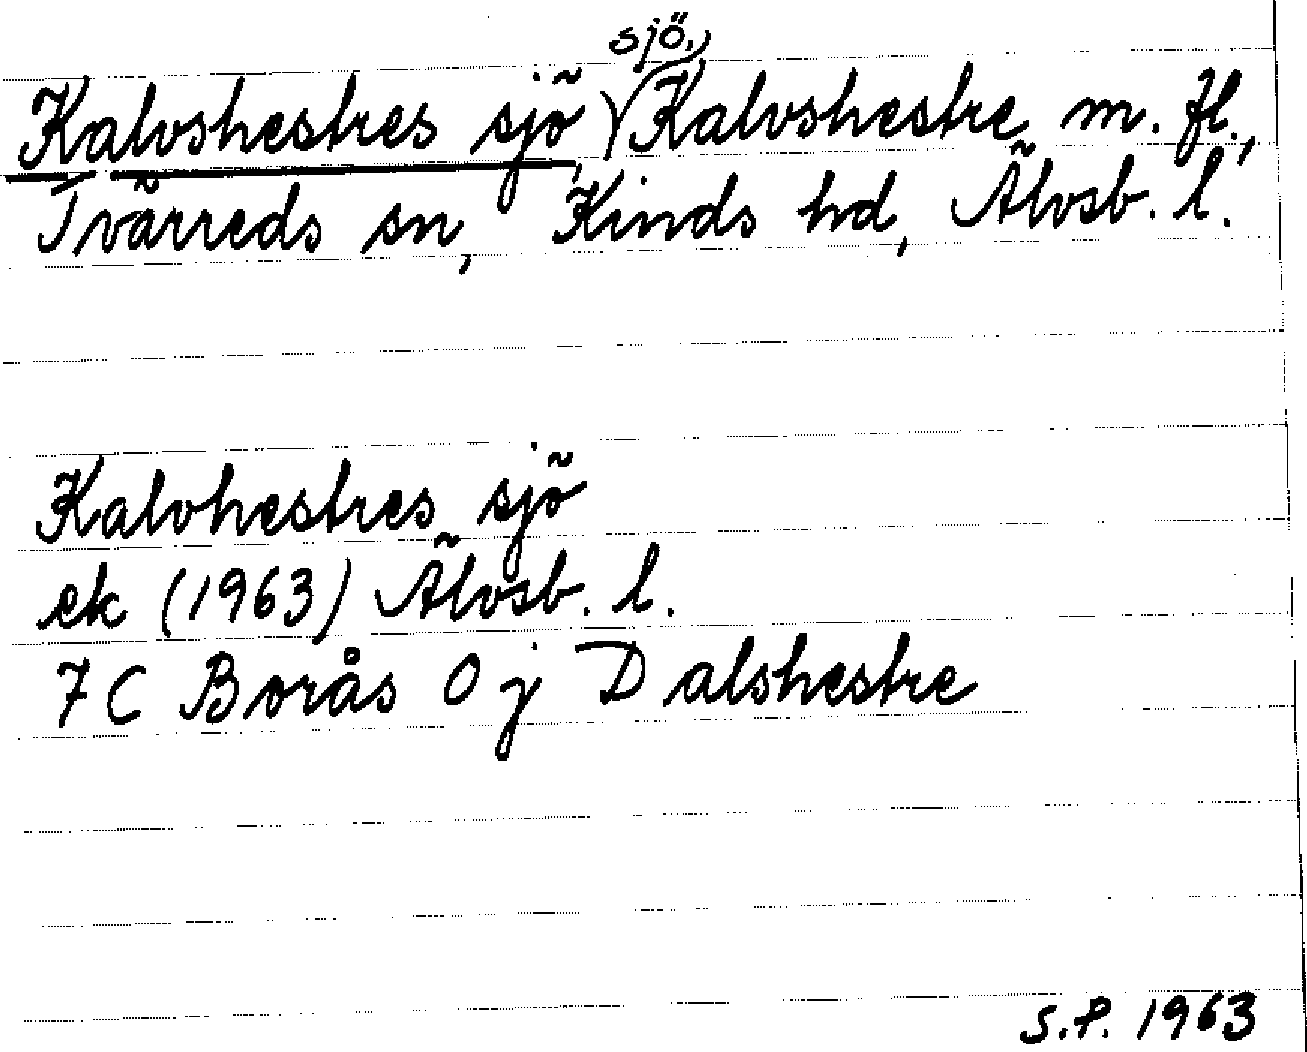 Kalvshestres sjö, sjö, Kalvshestre m. fl.,
Tvärreds sn, Kinds hd, Älvsb. l.
Kalvhestres sjö
ek (1963) Älvsb. l.
7 C Borås 0 j Dalshestre
S.P. 1963